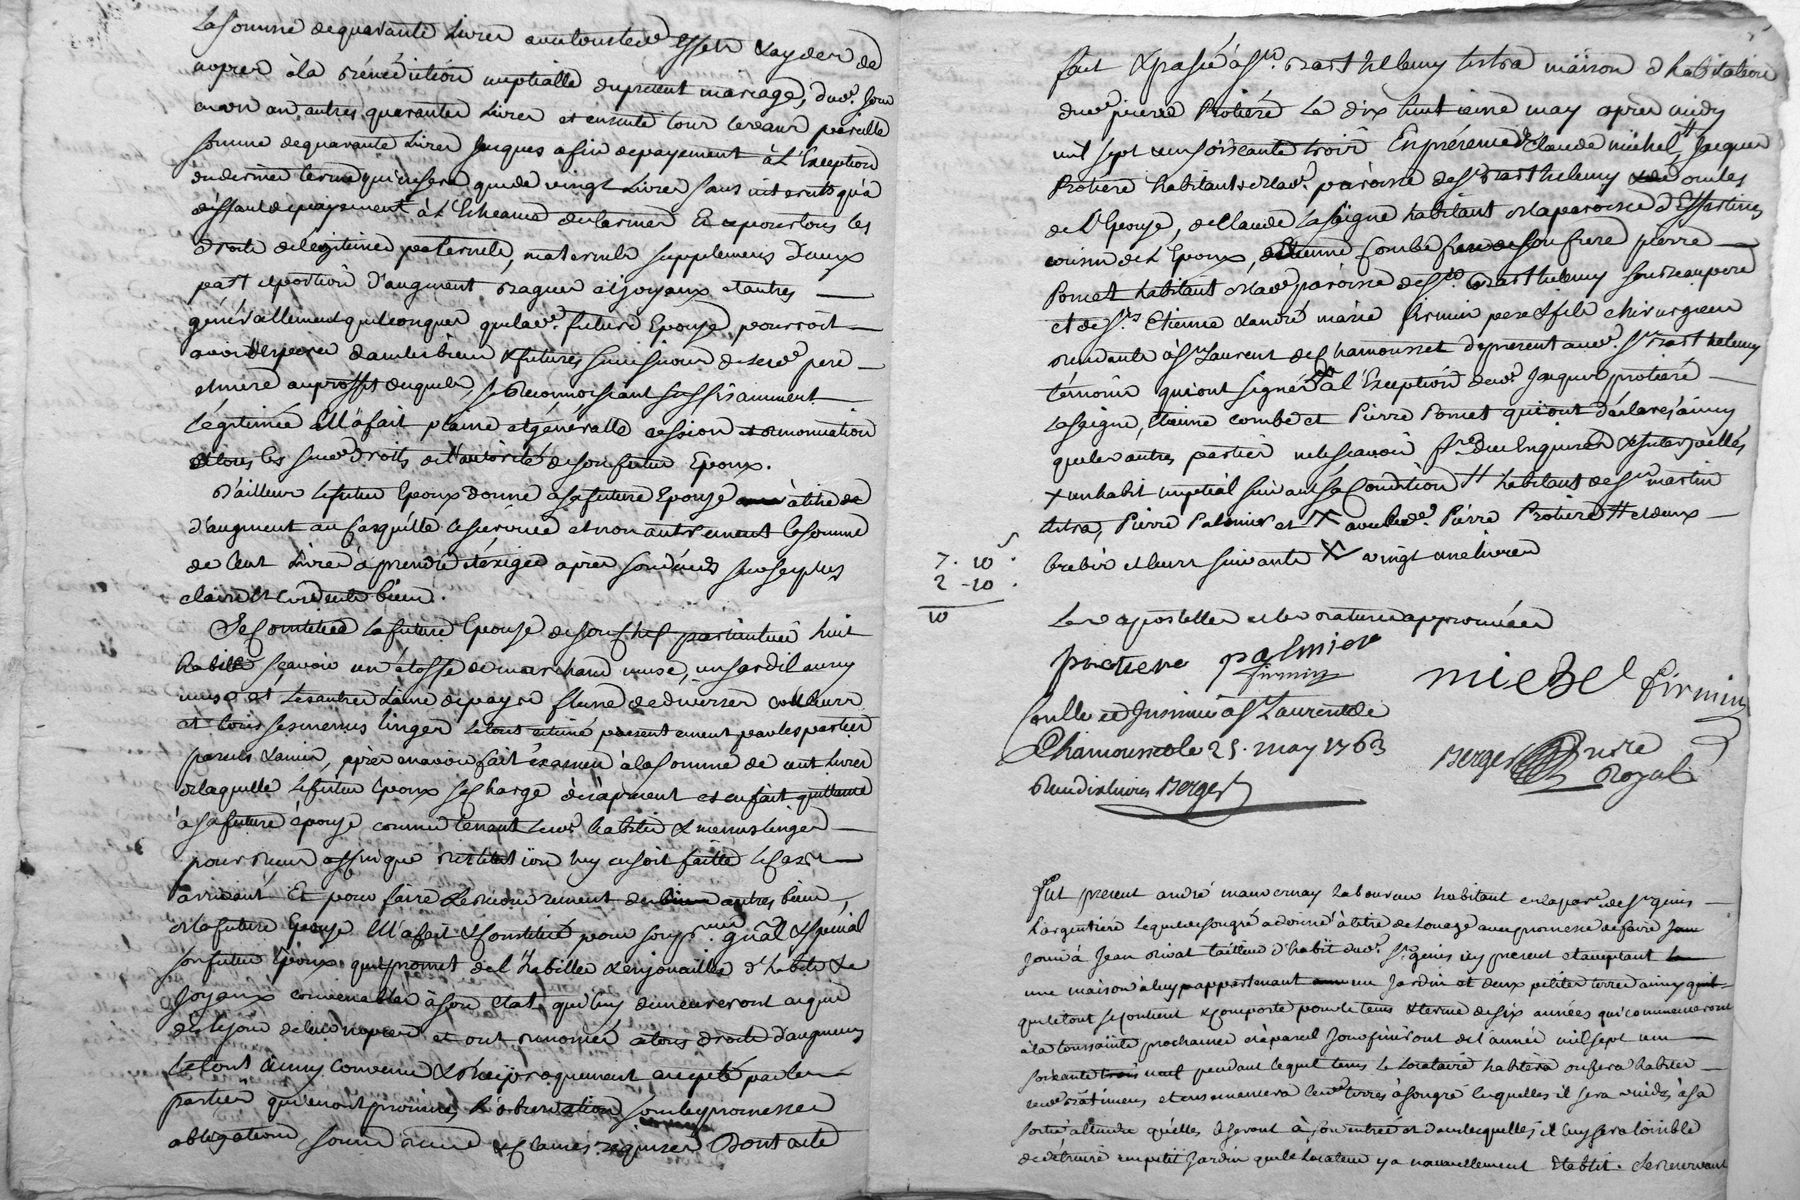 la somme de quarante livres
noces à la bénédiction nuptialle du présent mariage, dud. jour
en un an autres quarante livres et ensuite tour les ans pareille
somme de quarante livres jusques a fin de payement à l'exeption
du dernier terme qui ne sera que de vingt livres sans interests qu'a
déffaut de payement à l'écheance du terme Et ce pour tous les
droits de légitime paternels, maternels supplement d'iceux
part et portion d'augment bagues et joyaux et autres
généralement quelconques que lad. future Epouse pourroit
avoir
et mère au proffit duquel, se reconnoissant suffisamment
légitimée Elle a fait plaine et générale cession et renonciation
de tous les susd. droits de l'autorité de son futur Epoux.
D'ailleurs le futur Epoux donne a sa future Epouse à titre de
d'augment au cas qu'elle le survive et non autrement la somme
de cent livres à prendre et exiger après son décès sur ses plus
clairs et évidents biens.
Se constitue la future Epouse de son chef particulier huit
habits sçavoir un étoffe de marchand usé, un sardil aussy
usé et les autres laine de pays fleure de diverses couleurs
et tous ses menus linges le tout estimé présentement par les parties
parents et amis, après en avoir fait examen à la somme de cent livres
de laquelle le futur Epoux se charge et en fait quittance
à sa future épouse comme tenant lesd. habits et menus linges
pour reçus affin que restitution luy en soit faitte le cas
arrivant Et pour faire le recouvrement des autres biens,
de la future Epouse Elle a fait et constitué pour son gnal et spécial
son futur Epoux qui promet de l'habiller et enjouailler d'habits et de
joyaux convenables à son etat, qui luy demeureront acquis
dès le jour de leurs noces et ont renoncé a tous droits d'augments
le tout ainsy convenu et réciproquement accepté par les
parties qui en ont promis l'observation sous les promesses
obligations, soumissions et clauses requises Dont acte
fait et passé à St. Barthelemy lestra maison d'habitation
dud. pierre Protière le dix huit may après midy
mil sept cens soixante trois En présence de Claude michel, Jacques
Protière habitants de lad. paroisse de St Barthelemy oncles
de l'Epouse, de Claude Lassaigne habitant de la paroisse d'Essertines
cousin de l'Epoux, Etienne Combe son frere pierre
Poncet habitant de lad. paroisse de St. Barthelemy son beaupere
et de Srs Etienne et andré marie firmin pere et fils chirurgiens
residants à St Laurent de Chamousset de present aud. St Barthelemy
témoins qui ont signé à l'exeption desd. Jacques protière
Lassaigne, Etienne combe et Pierre Poncet qui ont déclaré ainsy
que les autres parties ne le scavoir de ce Enquis et interpellés
X un habit nuptial suivant sa condition # habitant de St martin
lestra, Pierre Palmier et X avec led. Pierre Protière # et deux
brebis et leurs suivants X vingt une livres
7 . 10 s
2 - 10 .
10
Les apostilles et les ratures approuvées
protiere palmier
firmin
michel firmin
Controllé et Insinué à St Laurent de
Chamousset le 25. may 1763
Reçu dix livres Berger
Berger nre Royal
Fut present andré mauvernay laboureur habitant en la par. de St genis
l'argentiere lequel de son gré a donné à titre de louage avec promesse de faire
jouir à Jean rivat tailleur d'habit dud. St. genis icy present et aceptant
une maison à luy appartenant un jardin et deux petites terres ainsy
que le tout se contient et comporte pour le tems et terme de six années qui commenceront
à la toussaints prochaine et à pareil jour finiront de l'année mil sept cens
soixante neuf pendant lequel tems le locataire habitera ou fera habiter
lesd. batimens et ensemencera lesd. terres à son gré lesquelles il sera à sa
sortie attendu qu'elles le seront à son entrée et dans lesquelles il luy sera loisible
de détruire un petit jardin que le locateur y a nouvellement établit. Se reservant